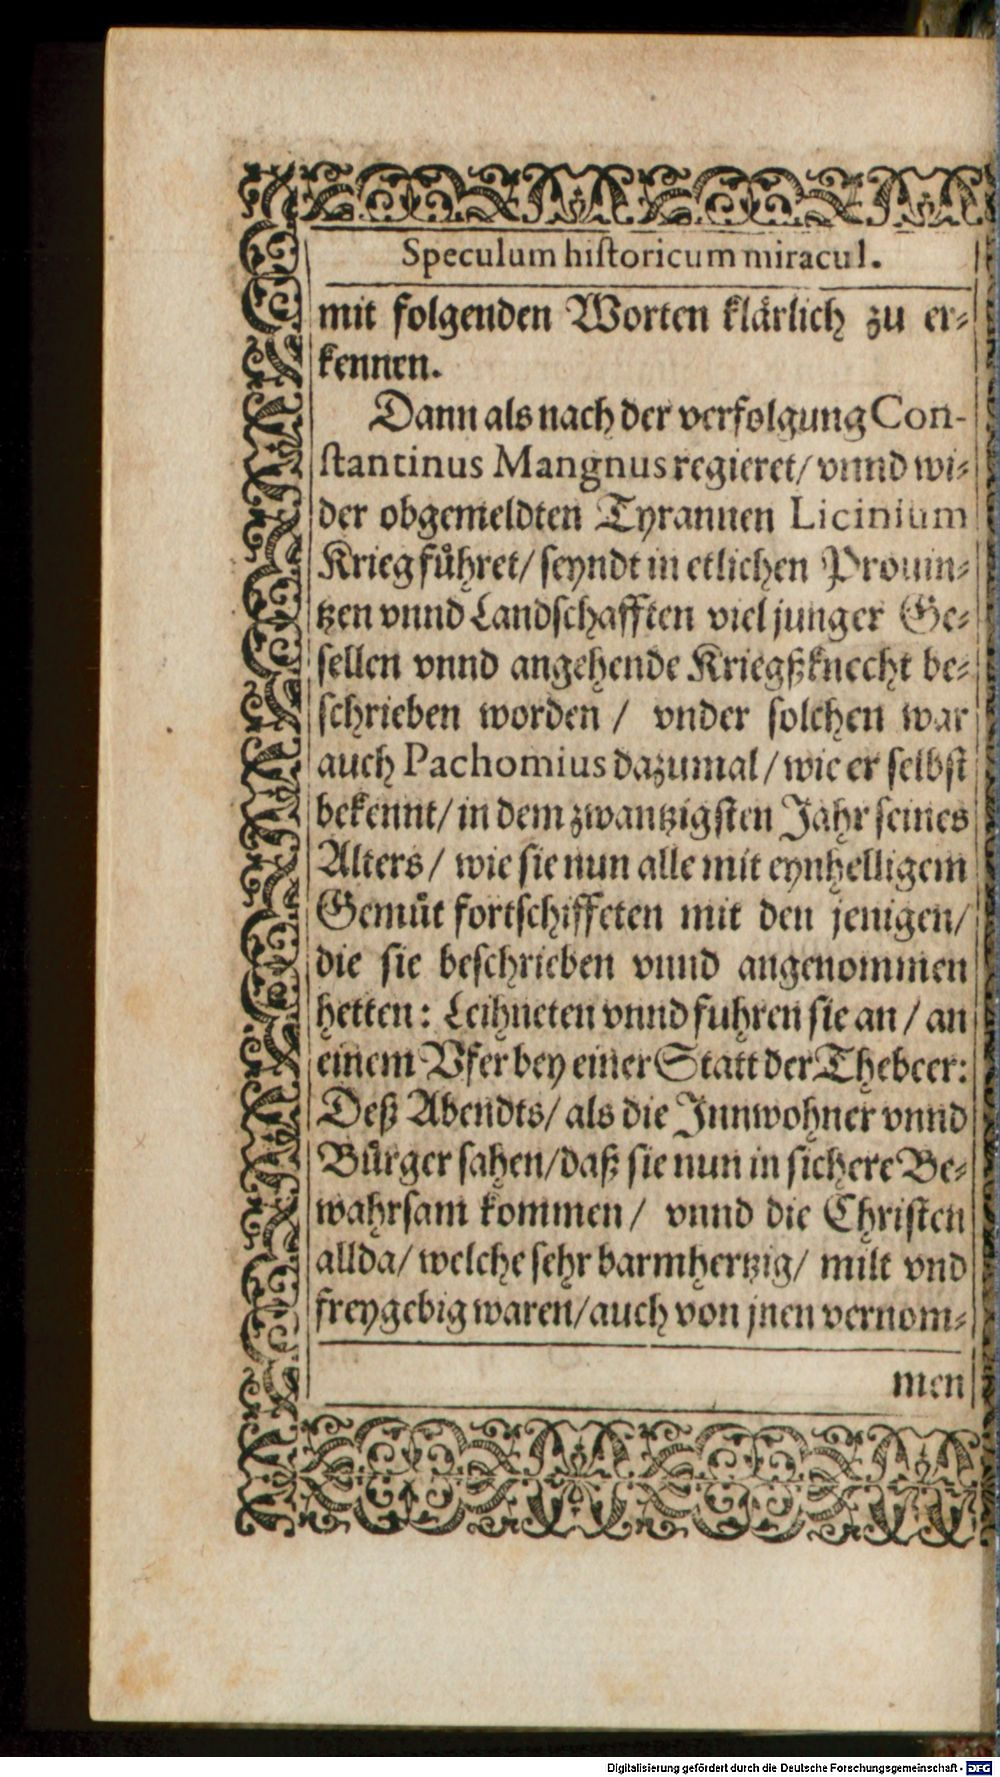 Speculum historicum miracul.
mit folgenden Worten klärlich zu er-
kennen.
Dann als nach der verfolgung Con-
stantinus Mangnus regieret/ vnnd wi-
der obgemeldten Tyrannen Licinium
Krieg führet/ seyndt in etlichen Prouin-
tzen vnnd Landschafften viel junger Ge-
sellen vnnd angehende Kriegßknecht be-
schrieben worden / vnder solchen war
auch Pachomius dazumal / wie er selbst
bekennt/ in dem zwantzigsten Jahr seines
Alters/ wie sie nun alle mit eynhelligem
Gemüt fortschiffeten mit den jenigen/
die sie beschrieben vnnd angenommen
hetten: Leihneten vnnd fuhren sie an / an
einem Vfer bey einer Statt der Thebeer:
Deß Abendts/ als die Innwohner vnnd
Bürger sahen/ daß sie nun in sichere Be-
wahrsam kommen / vnnd die Christen
allda/ welche sehr barmhertzig/ milt vnd
freygebig waren/ auch von jnen vernom-
men
Digitalisierung gefördert durch die Deutsche Forschungsgemeinschaft - DFG